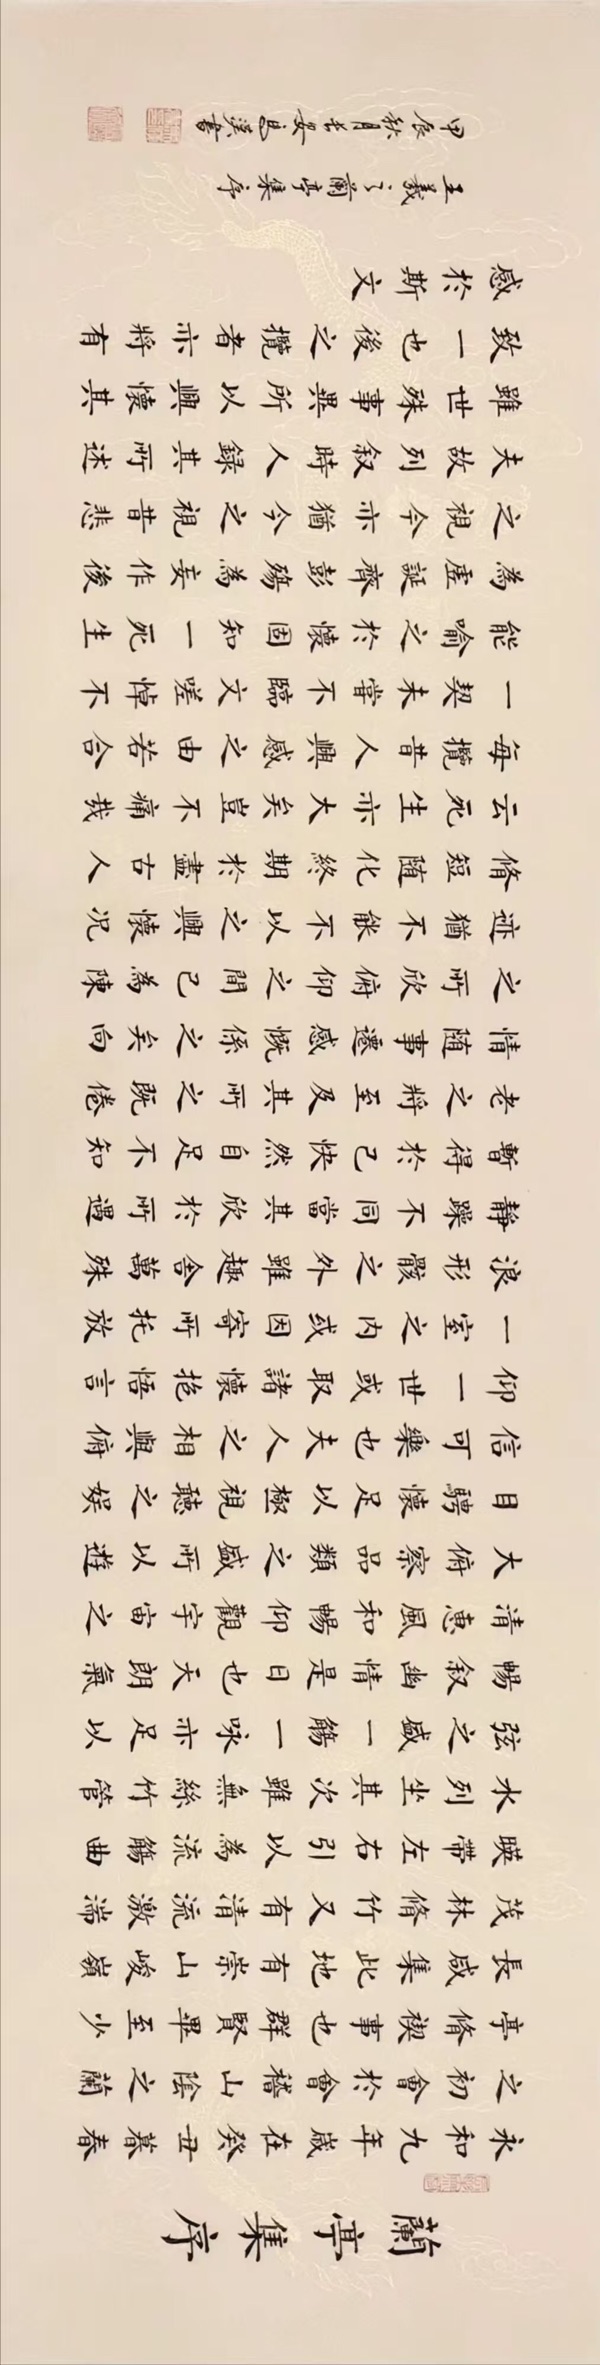 蘭亭集序
永和九年歲在癸丑暮春
之初會於會稽山陰之蘭
亭脩禊事也群賢畢至少
長咸集此地有崇山峻嶺
茂林脩竹又有清流激湍
暎帶左右引以為流觴曲
水列坐其次雖無絲竹管
弦之盛一觴一咏亦足以
暢叙幽情是日也天朗氣
清惠風和暢仰觀宇宙之
大俯察品類之盛所以遊
目騁懷足以極視聽之娛
信可樂也夫人之相與俯
仰一世或取諸懷抱悟言
一室之內或因寄所托放
浪形骸之外雖趣舍萬殊
靜躁不同當其欣於所遇
暫得於己快然自足不知
老之將至及其所之既倦
情随事遷感慨係之矣向
之所欣俯仰之間已為陳
迹猶不能不以之興懷况
脩短随化終期於盡古人
云死生亦大矣豈不痛哉
每攬昔人興感之由若合
一契未嘗不臨文嗟悼不
能喻之於懷固知一死生
為虛誕齊彭殤為妄作後
之視今亦猶今之視昔悲
夫故列叙時人録其所述
雖世殊事異所以興懷其
致一也後之攬者亦將有
感於斯文
王羲之蘭亭集序
甲辰秋月